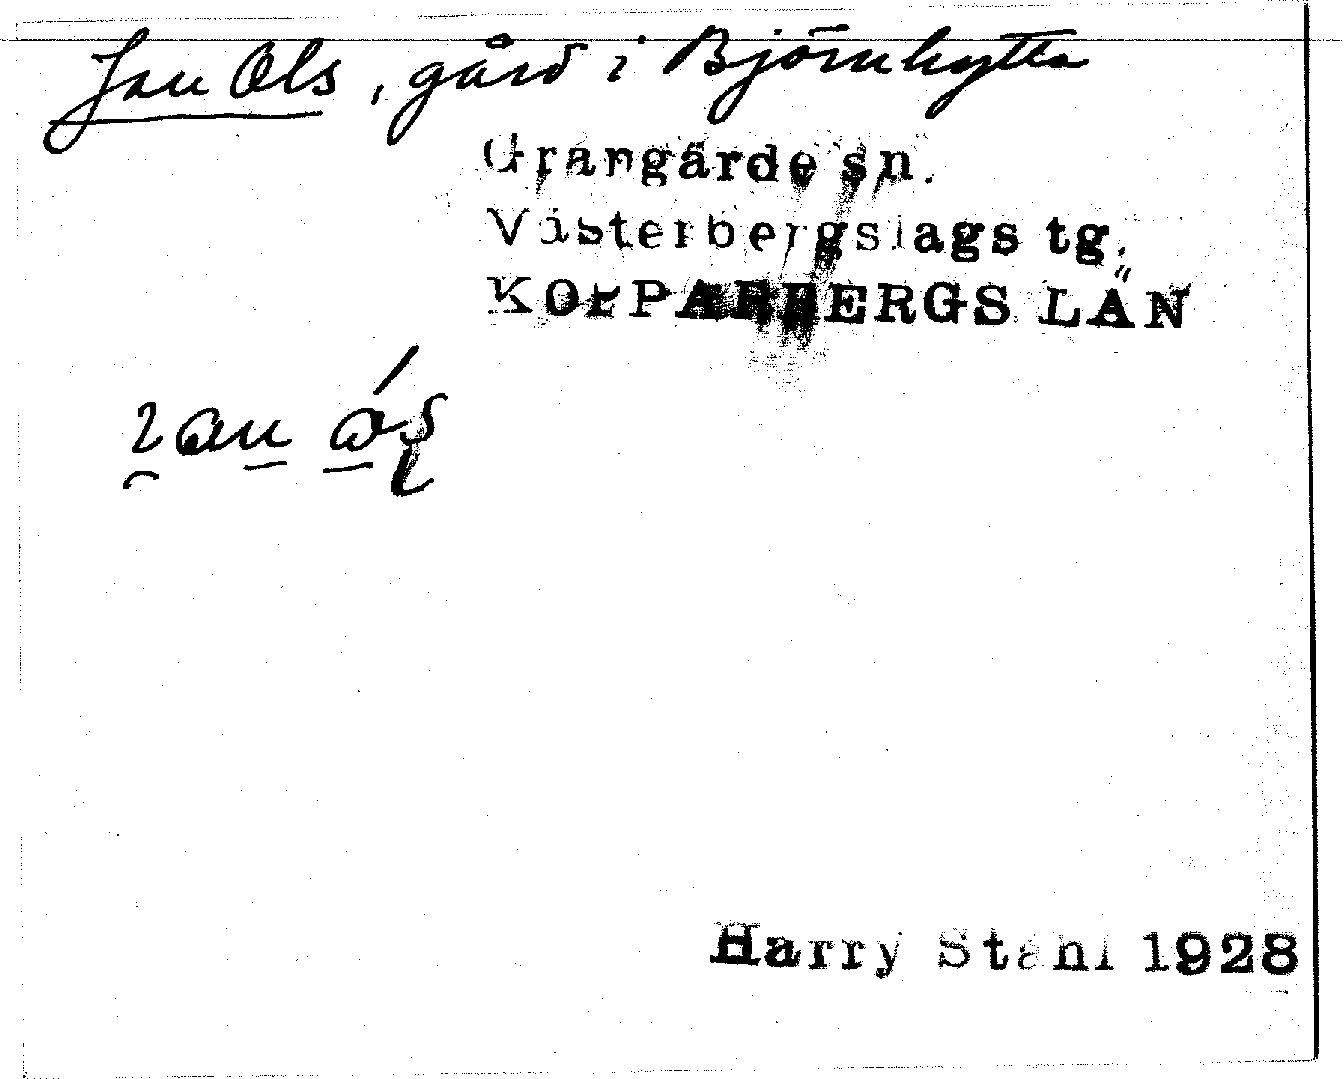 Jan Ols, gård i Björnhytta
Grangärde sn.
Västerbergslags tg.
KOPPARBERGS LÄN
Harry Ståhl 1928